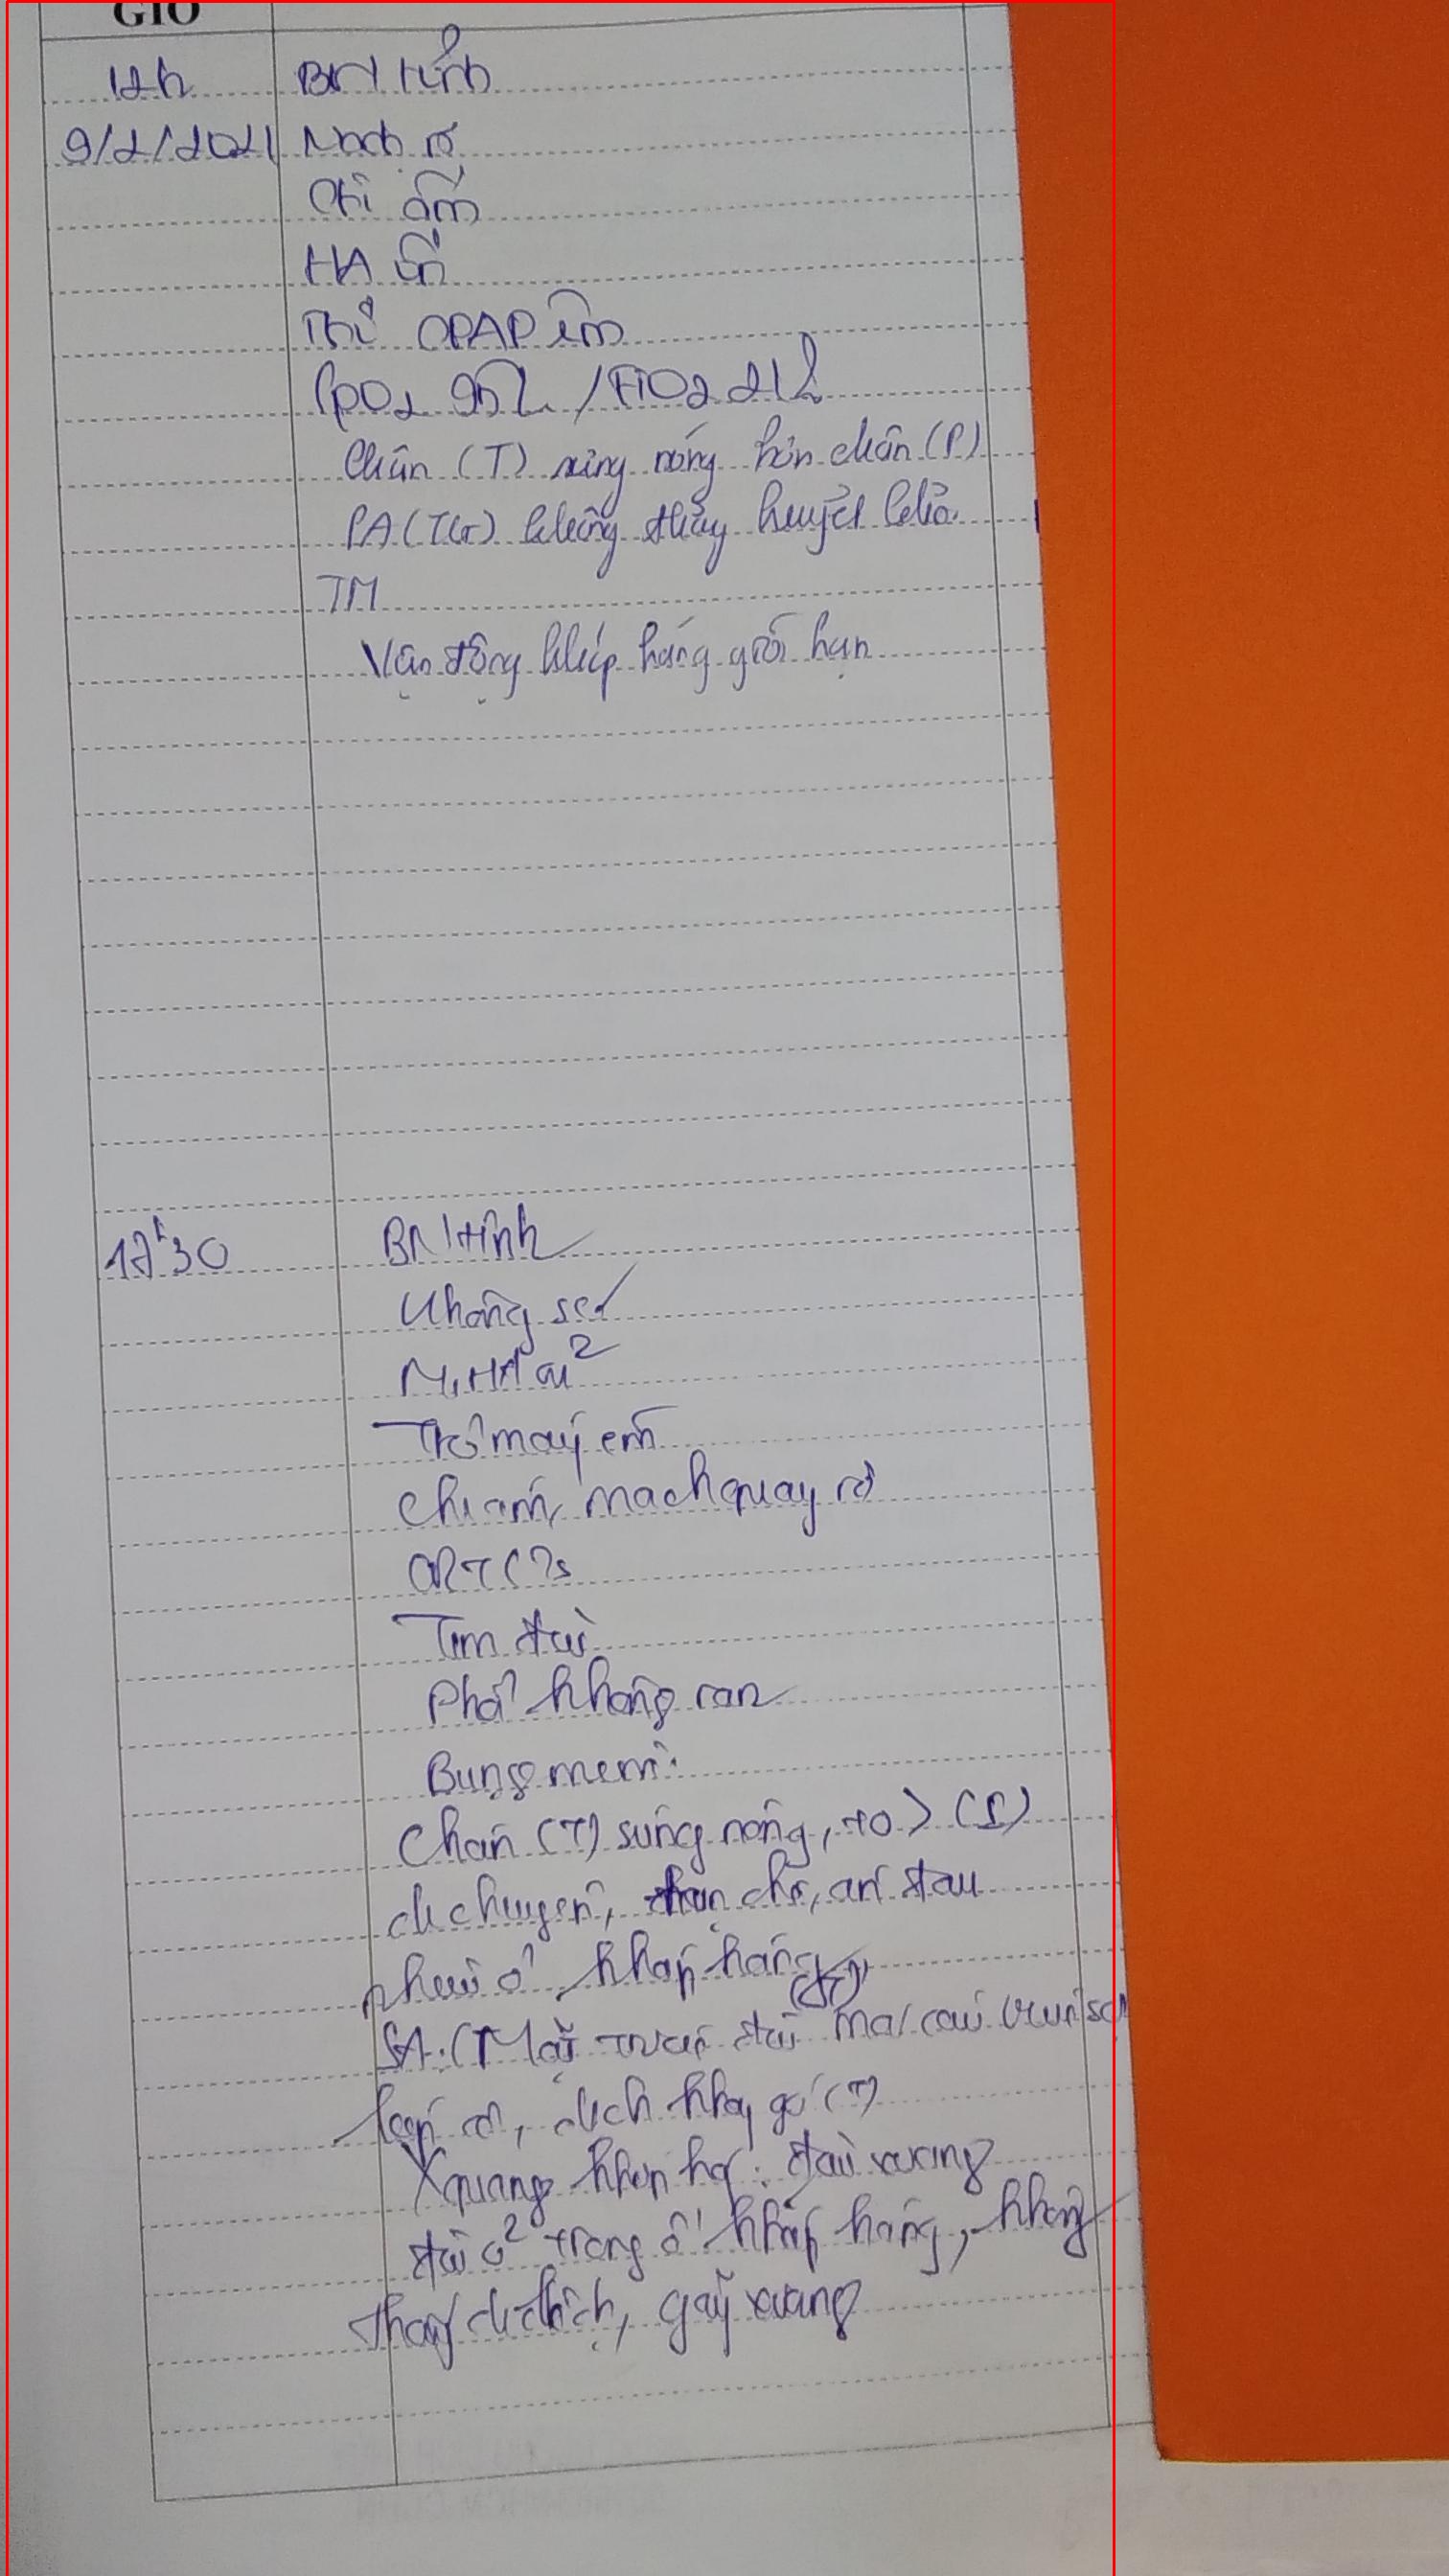 GIỜ
12h BN tỉnh
9/2/2021 Mạch rõ
Chi ấm
HA ổn
Thở CPAP êm
SpO2 95% /FiO2 21%
Chân (T) sưng nóng hơn chân (P)
SA (TG) không thấy huyết khối
TM
Vận động khớp háng giới hạn
17h30 BN tỉnh
Không sốt
M, HA ổn
Thở máy êm
Chi ấm, mạch quay rõ
CRT < 2s
Tim đều
Phổi không ran
Bụng mềm
Chân (T) sưng nóng, to > (P)
di chuyển, hạn chế, ấn đau
nhiều ở khớp háng (T)
SA: (Mặt trước đùi
cơ, dịch khớp gối (T)
Xquang khớp háng: đầu xương
đùi ở trong ổ khớp háng, không
thấy di lệch, gãy xương